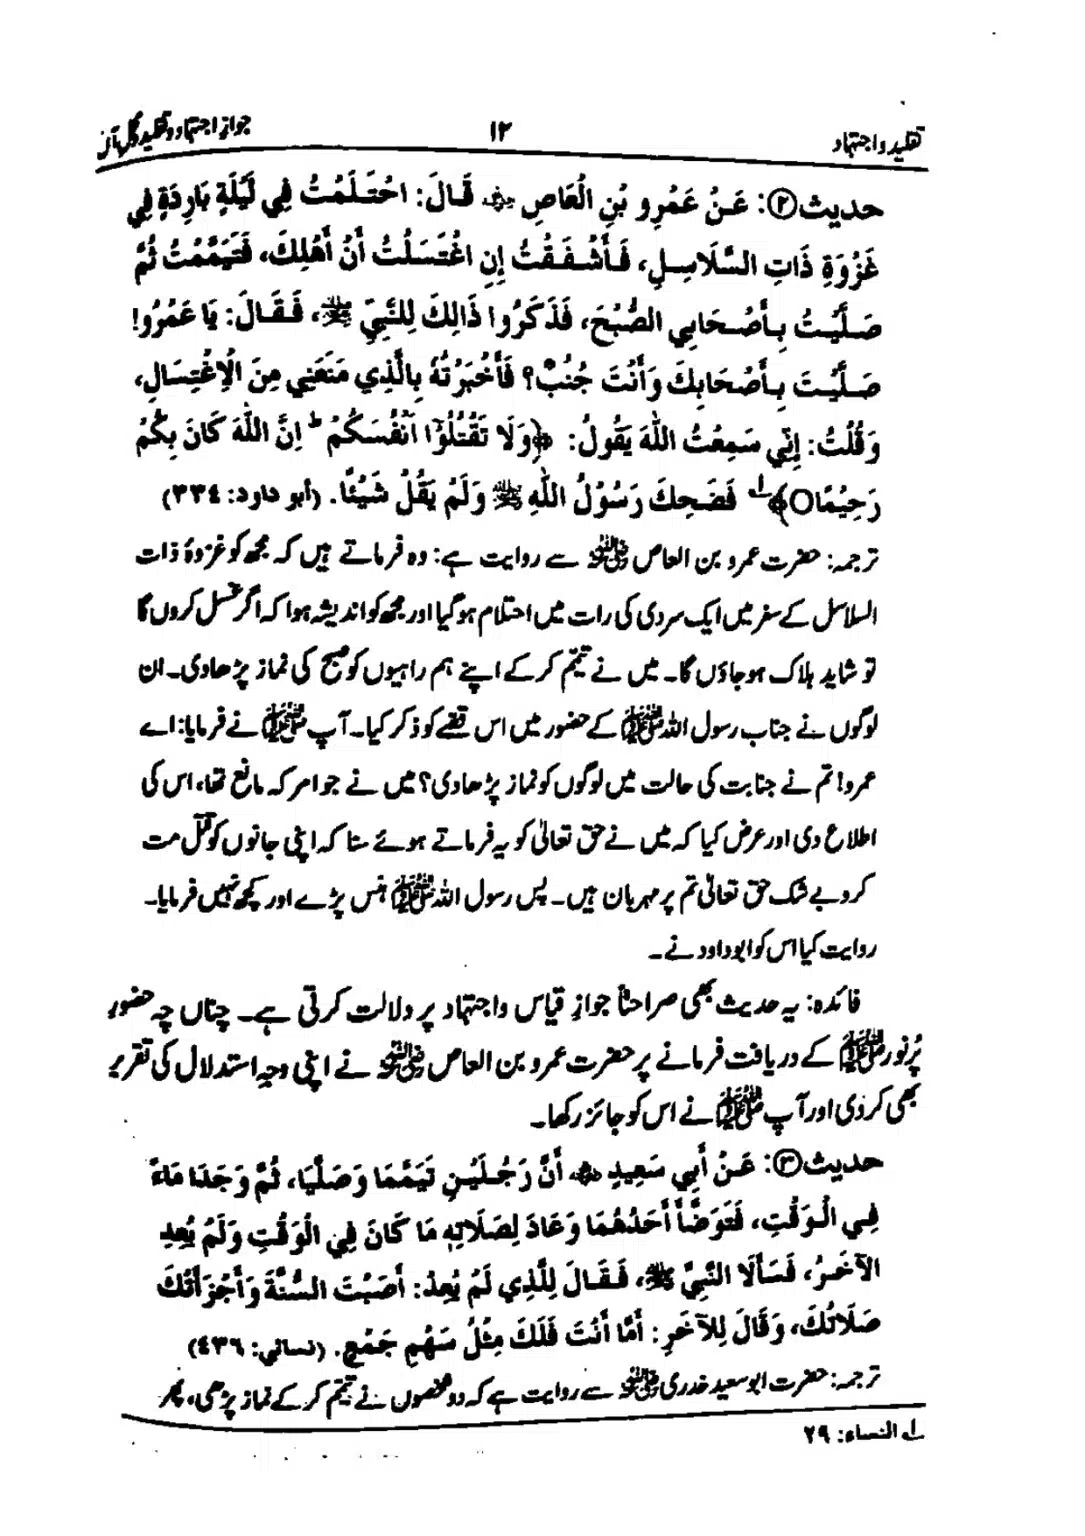 تقلید و اجتہاد
۱۲
جوازِ اجتہاد و تقلید
حدیث②: عَنْ عَمْرِو بْنِ الْعَاصِ ؓ قَالَ: احْتَلَمْتُ فِي لَيْلَةٍ بَارِدَةٍ فِي
غَزْوَةِ ذَاتِ السَّلَاسِلِ، فَأَشْفَقْتُ إِنِ اغْتَسَلْتُ أَنْ أَهْلِكَ، فَتَيَمَّمْتُ ثُمَّ
صَلَّيْتُ بِأَصْحَابِي الصُّبْحَ، فَذَكَرُوا ذَالِكَ لِلنَّبِيِّ ﷺ، فَقَالَ: يَا عَمْرُو!
صَلَّيْتَ بِأَصْحَابِكَ وَأَنْتَ جُنُبٌ؟ فَأَخْبَرْتُهُ بِالَّذِي مَنَعَنِي مِنَ الْاِغْتِسَالِ،
وَقُلْتُ: إِنِّي سَمِعْتُ اللهَ يَقُولُ: ﴿وَلَا تَقْتُلُوْٓا اَنْفُسَكُمْ ؕ اِنَّ اللّٰهَ كَانَ بِكُمْ
رَحِيْمًا○﴾؎۱ فَضَحِكَ رَسُوْلُ اللهِ ﷺ وَلَمْ يَقُلْ شَيْئًا. (أبو داود: ٣٣٤)
ترجمہ: حضرت عمرو بن العاص رضی اللہ عنہ سے روایت ہے: وہ فرماتے ہیں کہ مجھ کو غزوۂ ذات
السلاسل کے سفر میں ایک سردی کی رات میں احتلام ہوگیا اور مجھ کو اندیشہ ہوا کہ اگر غسل کروں گا
تو شاید ہلاک ہوجاؤں گا۔ میں نے تیمّم کرکے اپنے ہم راہیوں کو صبح کی نماز پڑھادی۔ ان
لوگوں نے جناب رسول اللہ ﷺ کے حضور میں اس قصّے کو ذکر کیا۔ آپ ﷺ نے فرمایا: اے
عمرو! تم نے جنابت کی حالت میں لوگوں کو نماز پڑھادی؟ میں نے جو امر کہ مانع تھا، اس کی
اطلاع دی اور عرض کیا کہ میں نے حق تعالیٰ کو یہ فرماتے ہوئے سنا کہ اپنی جانوں کو قتل مت
کرو بے شک حق تعالیٰ تم پر مہربان ہیں۔ پس رسول اللہ ﷺ ہنس پڑے اور کچھ نہیں فرمایا۔
روایت کیا اس کو ابوداود نے۔
فائدہ: یہ حدیث بھی صراحتاً جوازِ قیاس و اجتہاد پر دلالت کرتی ہے۔ چناں چہ حضور
پُرنور ﷺ کے دریافت فرمانے پر حضرت عمرو بن العاص رضی اللہ عنہ نے اپنی وجہِ استدلال کی تقریر
بھی کردی اور آپ ﷺ نے اس کو جائز رکھا۔
حدیث③: عَنْ أَبِي سَعِيدٍ ؓ أَنَّ رَجُلَيْنِ تَيَمَّمَا وَصَلَّيَا، ثُمَّ وَجَدَا مَاءً
فِي الْوَقْتِ، فَتَوَضَّأَ أَحَدُهُمَا وَعَادَ لِصَلَاتِهٖ مَا كَانَ فِي الْوَقْتِ وَلَمْ يُعِدِ
الْآخَرُ، فَسَأَلَا النَّبِيَّ ﷺ، فَقَالَ لِلَّذِي لَمْ يُعِدْ: أَصَبْتَ السُّنَّةَ وَأَجْزَأَتْكَ
صَلَاتُكَ، وَقَالَ لِلْآخَرِ: أَمَّا أَنْتَ فَلَكَ مِثْلُ سَهْمِ جَمْعٍ. (نسائي: ٤٣٦)
ترجمہ: حضرت ابوسعید خدری رضی اللہ عنہ سے روایت ہے کہ دو شخصوں نے تیمّم کرکے نماز پڑھی، پھر
؎۱ النساء: ۲۹